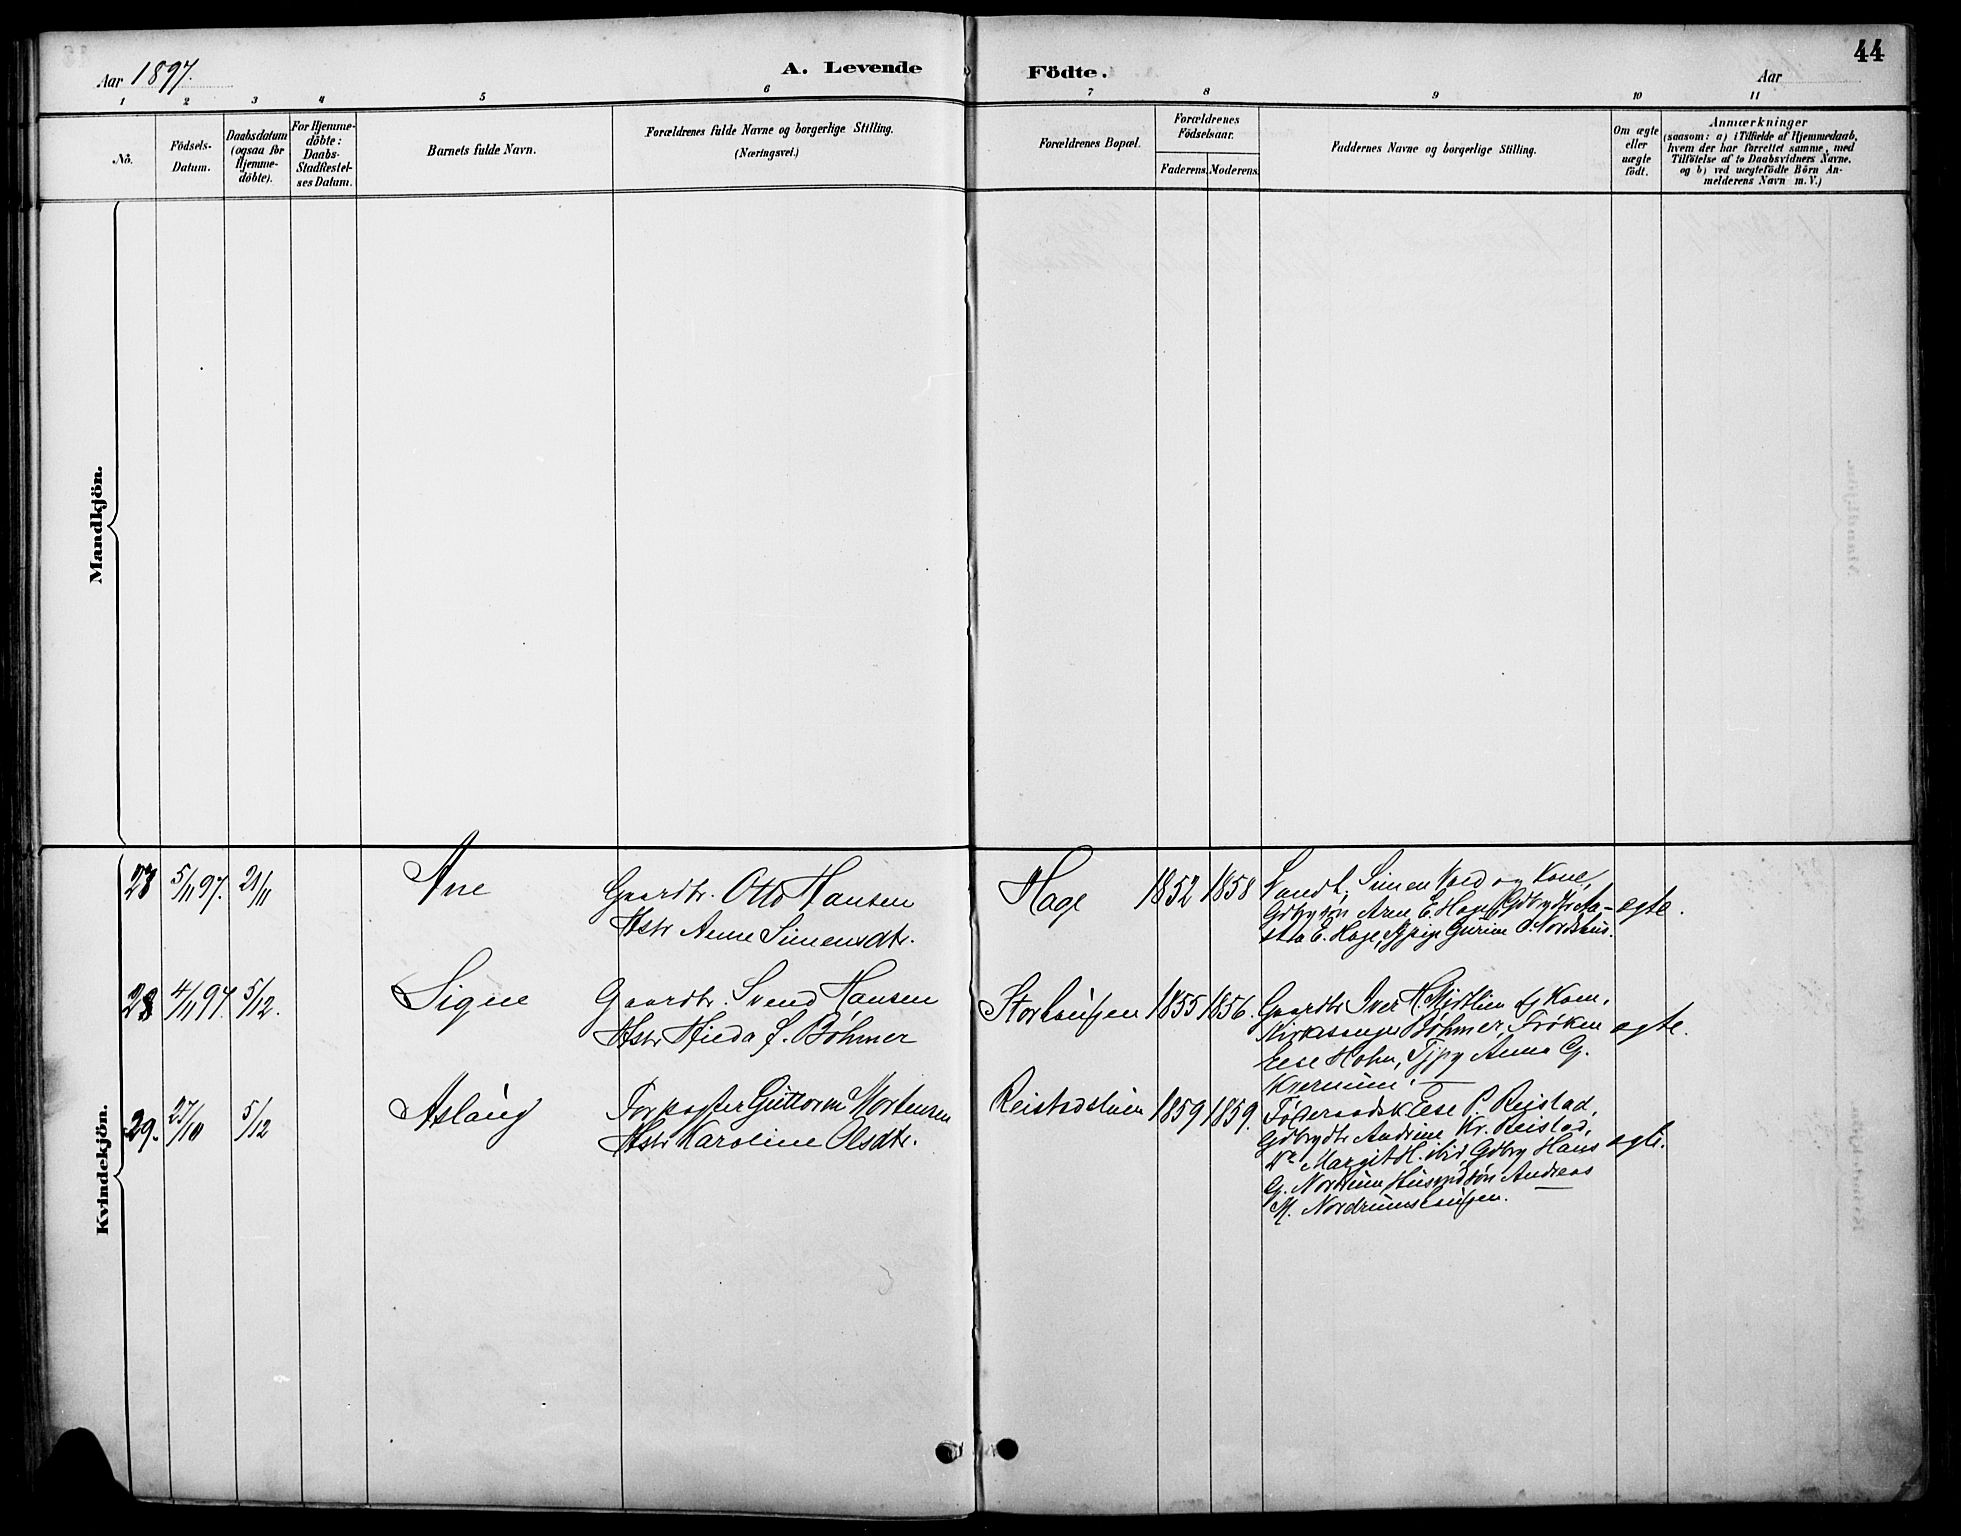 Aar 1897.
A. Levende
Födte.
Aar
44
1
2
3
4
5
6
7
8
9
10
11
Nö.
Födsels-
Datum.
Daabsdatum
(ogsaa for
Hjemme-
döbte).
For Hjemme-
döbte:
Daabs-
Stadfæstel-
ses Datum.
Barnets fulde Navn.
Forældrenes fulde Navne og borgerlige Stilling.
(Næringsvei.)
Forældrenes Bopæl.
Forældrenes
Födselsaar.
Faderens.
Moderens.
Faddernes Navne og borgerlige Stilling.
Om ægte
eller
uægte
født.
Anmærkninger
(saasom: a) i Tilfælde af Hjemmedaab,
hvem der har forrettet samme, med
Tilföielse af to Daabsvidners Navne.
og b) ved uægtefödte Börn An-
melderens Navn m. V.)
Mandkjön.
Kvindekjön.
27 5/11 97. 21/11
Ane
Gaardbr. Otto Hansen
Hstr Anne Simensdtr.
Hage
1852 1858
Simen og Kone,
Gdbrysön Arne E. Hage, Gdbrydtr Aa-
sta E. Hage, Gurine O.
ægte.
28 4/11 97. 5/12.
Signe
Gaardbr. Svend Hansen
Hstr Böhmer
Storlaupen
1855 1856.
Gaardbr Iver H. og Kone,
Kirkesanger Böhmer, Fröken
Holm, Anna G.
Kvernum.
ægte.
29. 27/10 5/12
Aslaug
Forpagter Guttorm Mortensen
Hstr Karoline Olsdtr.
Reistadstuen
1859 1859.
P. Reistad,
Gdbrydtr Andrine Kr. Reistad,
Do Margit H. ibid, Gdbry Hans
G. Nordrum, Husmdsön Andreas
M. Nordrumslaupen.
ægte.